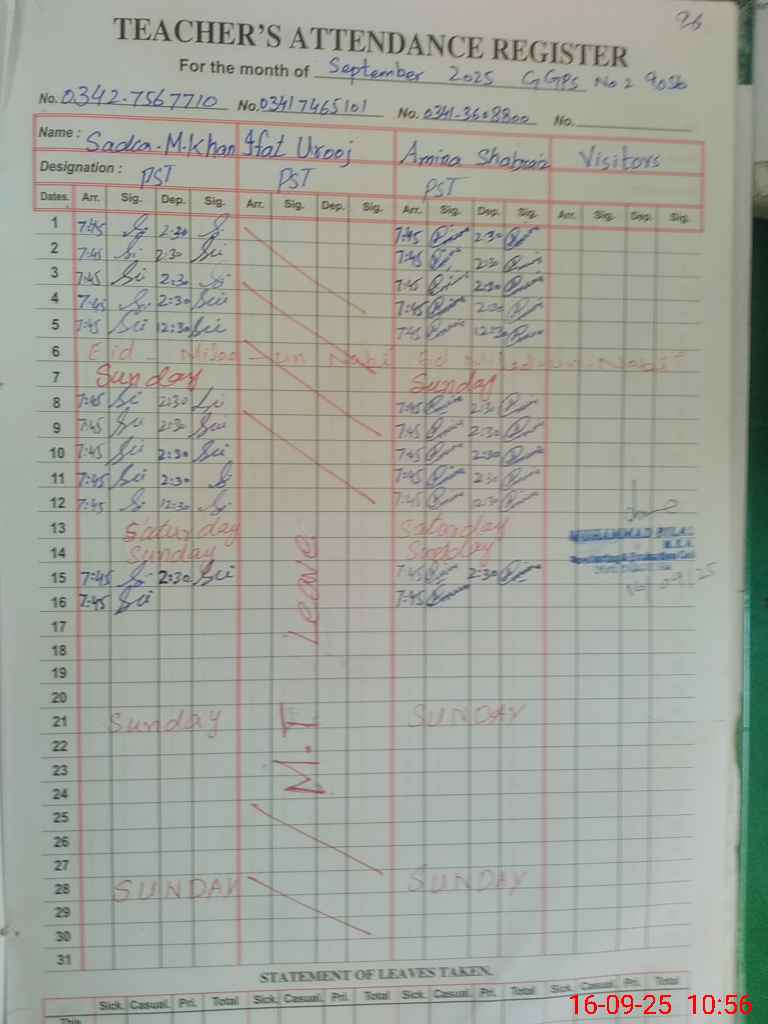 96
TEACHER'S ATTENDANCE REGISTER
For the month of September 2025 GGPS No 2 9056
No. 0342-7567710 No. 03417465101 No. 0341-3608800 No.
Name : Sadca-M.Khan Ifat Urooj Amina Shabraiz Visitors
Designation : PST PST PST
Dates. Arr. Sig. Dep. Sig. Arr. Sig. Dep. Sig. Arr. Sig. Dep. Sig. Arr. Sig. Dep. Sig.
1 7:45 2:30 7:45 2:30
2 7:45 2:30 7:45 2:30
3 7:45 2:30 7:45 2:30
4 7:45 2:30 7:45 2:30
5 7:45 12:30 7:45 12:30
6 Eid - Milad-un Nabi Ed Milad-un-Nabi
7 Sunday Sunday
8 7:45 2:30 7:45 2:30
9 7:45 2:30 7:45 2:30
10 7:45 2:30 7:45 2:30
11 7:45 2:30 7:45 2:30
12 7:45 12:30 7:45 12:30
13 Saturday Saturday
MUHAMMAD BILAL
14 Sunday Sunday
M.E.A.
15 7:45 2:30 7:45 2:30
16 7:45 7:45
17
18
19
20
21 Sunday SUNDAY
22
23
24
M.T Leave
25
26
27
28 SUNDAY SUNDAY
29
30
31
STATEMENT OF LEAVES TAKEN.
Sick. Casual. Pri. Total Sick. Casual. Pri. Total Sick. Casual. Pri. Total Sick. Casual. Pri. Total
This
16-09-25 10:56